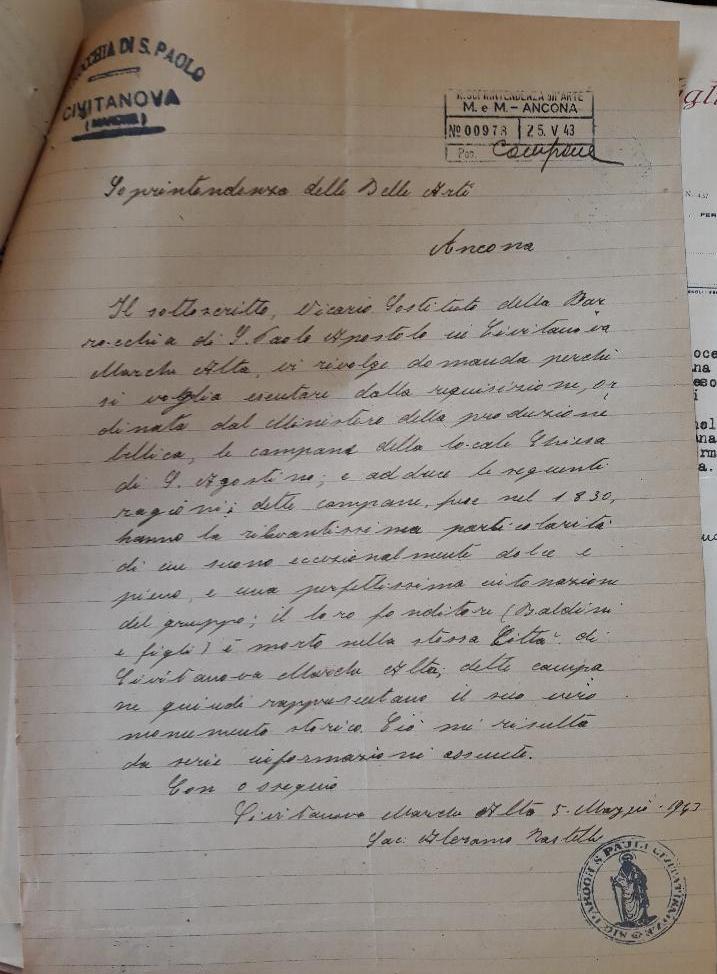 PARROCCHIA DI S. PAOLO
CIVITANOVA
(MARCHE)
R. SOPRINTENDENZA ALL'ARTE
M. e M. - ANCONA
No 00978 25. V 43
Pos. Campane
Soprintendenza delle Belle Arti
Ancona
Il sottoscritto, Vicario Sostituto della Par
rocchia di S. Paolo Apostolo in Civitanova
Marche Alta, vi rivolge domanda perchè
si voglia esentare dalla requisizione, or
dinata dal Ministero della produzione
bellica, le campane della locale Chiesa
di S. Agostino; e adduce le seguenti
ragioni: dette campane, fuse nel 1830,
hanno la rilevantissima particolarità
di un suono eccezionalmente dolce e
pieno, e una perfettissima intonazione
del gruppo; il loro fonditore (Baldini
e figli) è morto nella stessa Città di
Civitanova Marche Alta; dette campa
ne quindi rappresentano il suo vero
monumento storico. Ciò mi risulta
da serie informazioni assunte.
Con ossequio
Civitanova Marche Alta 5. Maggio. 1943
Sac.
N. 437
PER